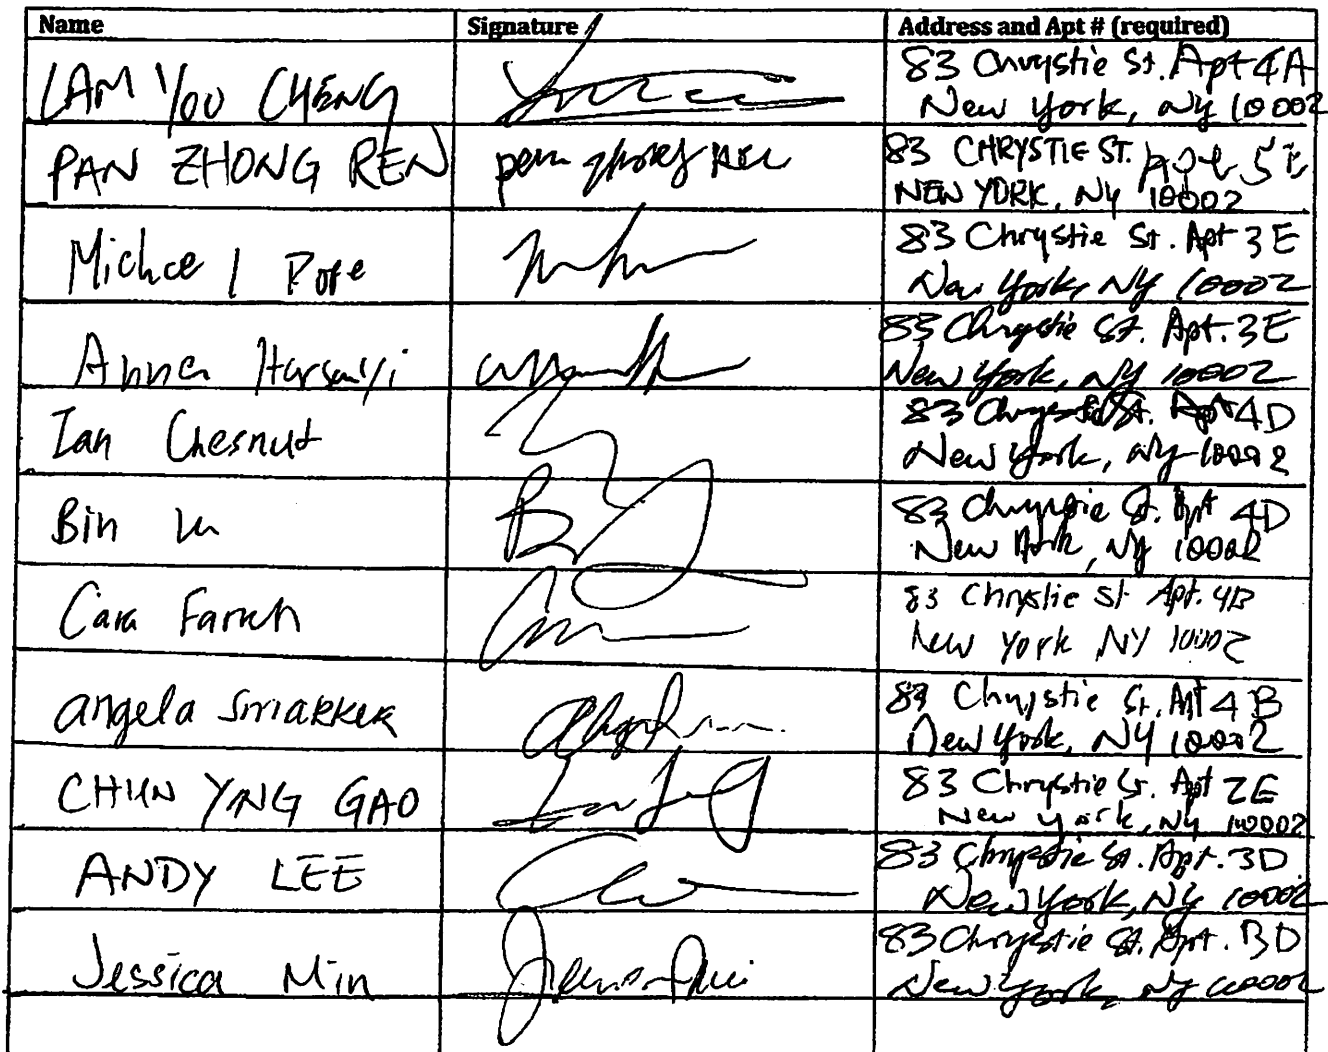 Name Signature Address and Apt # (required)
LAM YOU CHENG 83 Chrystie St. Apt 4A
New York, NY 10002
PAN ZHONG REN pan zhong ren 83 CHRYSTIE ST. Apt 5E
NEW YORK, NY 10002
Michael Pope 83 Chrystie St. Apt 3E
New York, NY 10002
Anna Harsanyi 83 Chrystie St. Apt. 3E
New York, NY 10002
Ian Chesnut 83 Chrystie St. Apt 4D
New York, NY 10002
Bin 83 Chrystie St. Apt 4D
New York, NY 10002
Cara 83 Chrystie St Apt. 4B
New York NY 10002
Angela 83 Chrystie St. Apt 4B
New York, NY 10002
CHUN YING GAO 83 Chrystie St. Apt 2E
New York, NY 10002
ANDY LEE 83 Chrystie St. Apt. 3D
New York, NY 10002
Jessica Min 83 Chrystie St. Apt. 3D
New York, NY 10002